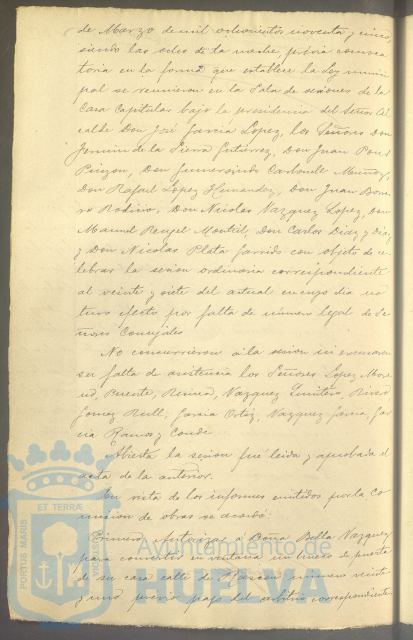 de Marzo de mil ochocientos noventa y cinco
siendo las ocho de la noche, previa convoca
toria en la forma que establece la Ley muni
pal se reunieron en la Sala de sesiones de la
Casa Capitular bajo la presidencia del Señor Al
calde Don José Garcia Lopez, los Señores Don
Fermin de la Sierra Gutierrez, Don Juan Pons
Pinzon, Don Gumersindo Carbonell Muñoz,
Don Rafael Lopez Hernandez, Don Juan
Don Nicolas Vazquez Lopez, Don
Manuel Rengel Don Carlos Diaz y Diaz
y Don Nicolas Plata Garrido con objeto de ce
lebrar la sesion ordinaria correspondiente
al veinte y siete del actual en cuyo dia no
tuvo efecto por falta de número legal de Se
ñores Concejales
No concurrieron á la sesion ni excusaron
su falta de asistencia los Señores Lopez
Puente, Vazquez
Gomez Rull, Garcia Ortiz, Vazquez Garcia, Gar
cia Ramos y Conde
Abierta la sesion fué leida y aprobada el
acta de la anterior.
En vista de los informes emitidos por la Co
mision de obras se acordó:
Primero. Autorizar á Doña Bella Vazquez
para convertir en ventana un hueco de puerta
de su casa calle de Rascon número veinte
y uno previo pago del arbitrio correspondiente
PORTUS MARIS
ET TERRÆ
CUSTODIA
Ayuntamiento de
HUELVA